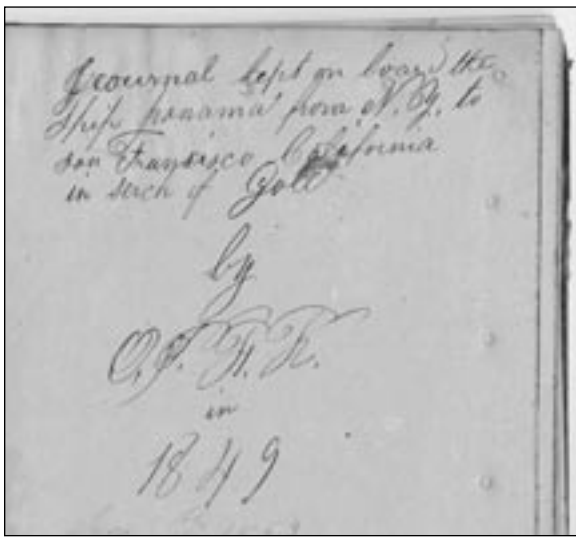 Journal kept on board the
Ship panama from N.Y. to
san Fransisco California
in serch of Gold
by
O.F.
in
1849